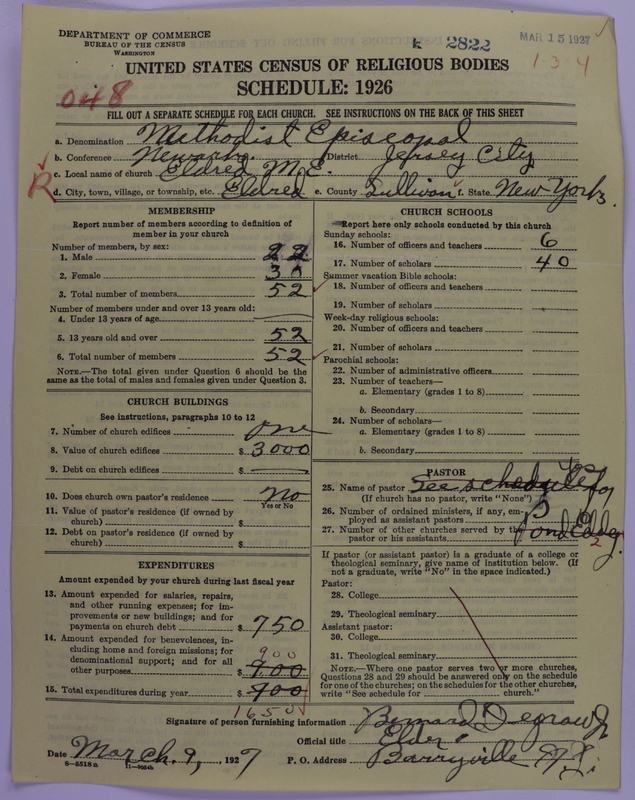 DEPARTMENT OF COMMERCE
BUREAU OF THE CENSUS
WASHINGTON
2822
MAR 15 1927
1-3-4
UNITED STATES CENSUS OF RELIGIOUS BODIES
SCHEDULE: 1926
048
FILL OUT A SEPARATE SCHEDULE FOR EACH CHURCH. SEE INSTRUCTIONS ON THE BACK OF THIS SHEET
a. Denomination Methodist Episcopal
b. Conference Newark. District Jersey City
c. Local name of church Eldred M.E.
R
d. City, town, village, or township, etc. Eldred e. County Sullivan f. State New York.
MEMBERSHIP
Report number of members according to definition of
member in your church
Number of members, by sex:
1. Male 22
2. Female 30
3. Total number of members 52
Number of members under and over 13 years old:
4. Under 13 years of age
5. 13 years old and over 52
6. Total number of members 52
NOTE.—The total given under Question 6 should be
same as the total of males and females given under Question 3.
CHURCH BUILDINGS
See instructions, paragraphs 10 to 12
7. Number of church edifices one
8. Value of church edifices $ 3000
9. Debt on church edifices $
10. Does church own pastor's residence No
Yes or No
11. Value of pastor's residence (if owned by
church) $
12. Debt on pastor's residence (if owned by
church) $
EXPENDITURES
Amount expended by your church during last fiscal year
13. Amount expended for salaries, repairs,
and other running expenses; for im-
provements or new buildings; and for
payments on church debt $ 750
14. Amount expended for benevolences, in-
cluding home and foreign missions; for
denominational support; and for all
other purposes $ 900
900
15. Total expenditures during year $ 900
1650
CHURCH SCHOOLS
Report here only schools conducted by this church
Sunday schools:
16. Number of officers and teachers 6
17. Number of scholars 40
Summer vacation Bible schools:
18. Number of officers and teachers
19. Number of scholars
Week-day religious schools:
20. Number of officers and teachers
21. Number of scholars
Parochial schools:
22. Number of administrative officers
23. Number of teachers—
a. Elementary (grades 1 to 8)
b. Secondary
24. Number of scholars—
a. Elementary (grades 1 to 8)
b. Secondary
PASTOR
25. Name of pastor See schedule for
(If church has no pastor, write "None")
26. Number of ordained ministers, if any, em-
ployed as assistant pastors
27. Number of other churches served by the
pastor or his assistants Pond Eddy.
2
If pastor (or assistant pastor) is a graduate of a college or
theological seminary, give name of institution below. (If
not a graduate, write "No" in the space indicated.)
Pastor:
28. College
29. Theological seminary
Assistant pastor:
30. College
31. Theological seminary
NOTE.—Where one pastor serves two or more churches,
Questions 28 and 29 should be answered only on the schedule
for one of the churches; on the schedules for the other churches,
write "See schedule for church."
Signature of person furnishing information Bernard Degraw
Official title Elder
Date March 9, 1927 P. O. Address Barryville N.Y.
8—5518 a